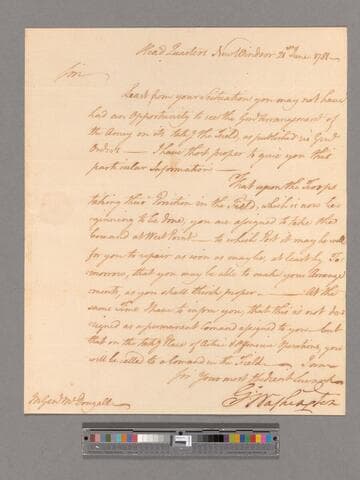 Head Quarters New Windsor 21st June 1781
Sir
Least from your Situation you may not have
had an Opportunity to see the Genl arrangement of
the Army on its takg the Field, as published in Genl
Orders — I have tho't proper to give you this
particular Information —
That upon the Troops
taking their Position in the Field, which is now be-
ginning to be done, you are assigned to take the
Comand at West Point — to which Post it may be well
for you to repair as soon as may be, at least by To-
morrow, that you may be able to make your Arrange-
ments, as you shall think proper. — At the
same Time I have to inform you, that this is not de-
signed as a permanent Comand assigned to you — but
that on the takg Place of Active & Offensive Operations, you
will be called to a Comand in the Field — I am
Sir Your most Obedient
G: Washington
M Genl McDougall —